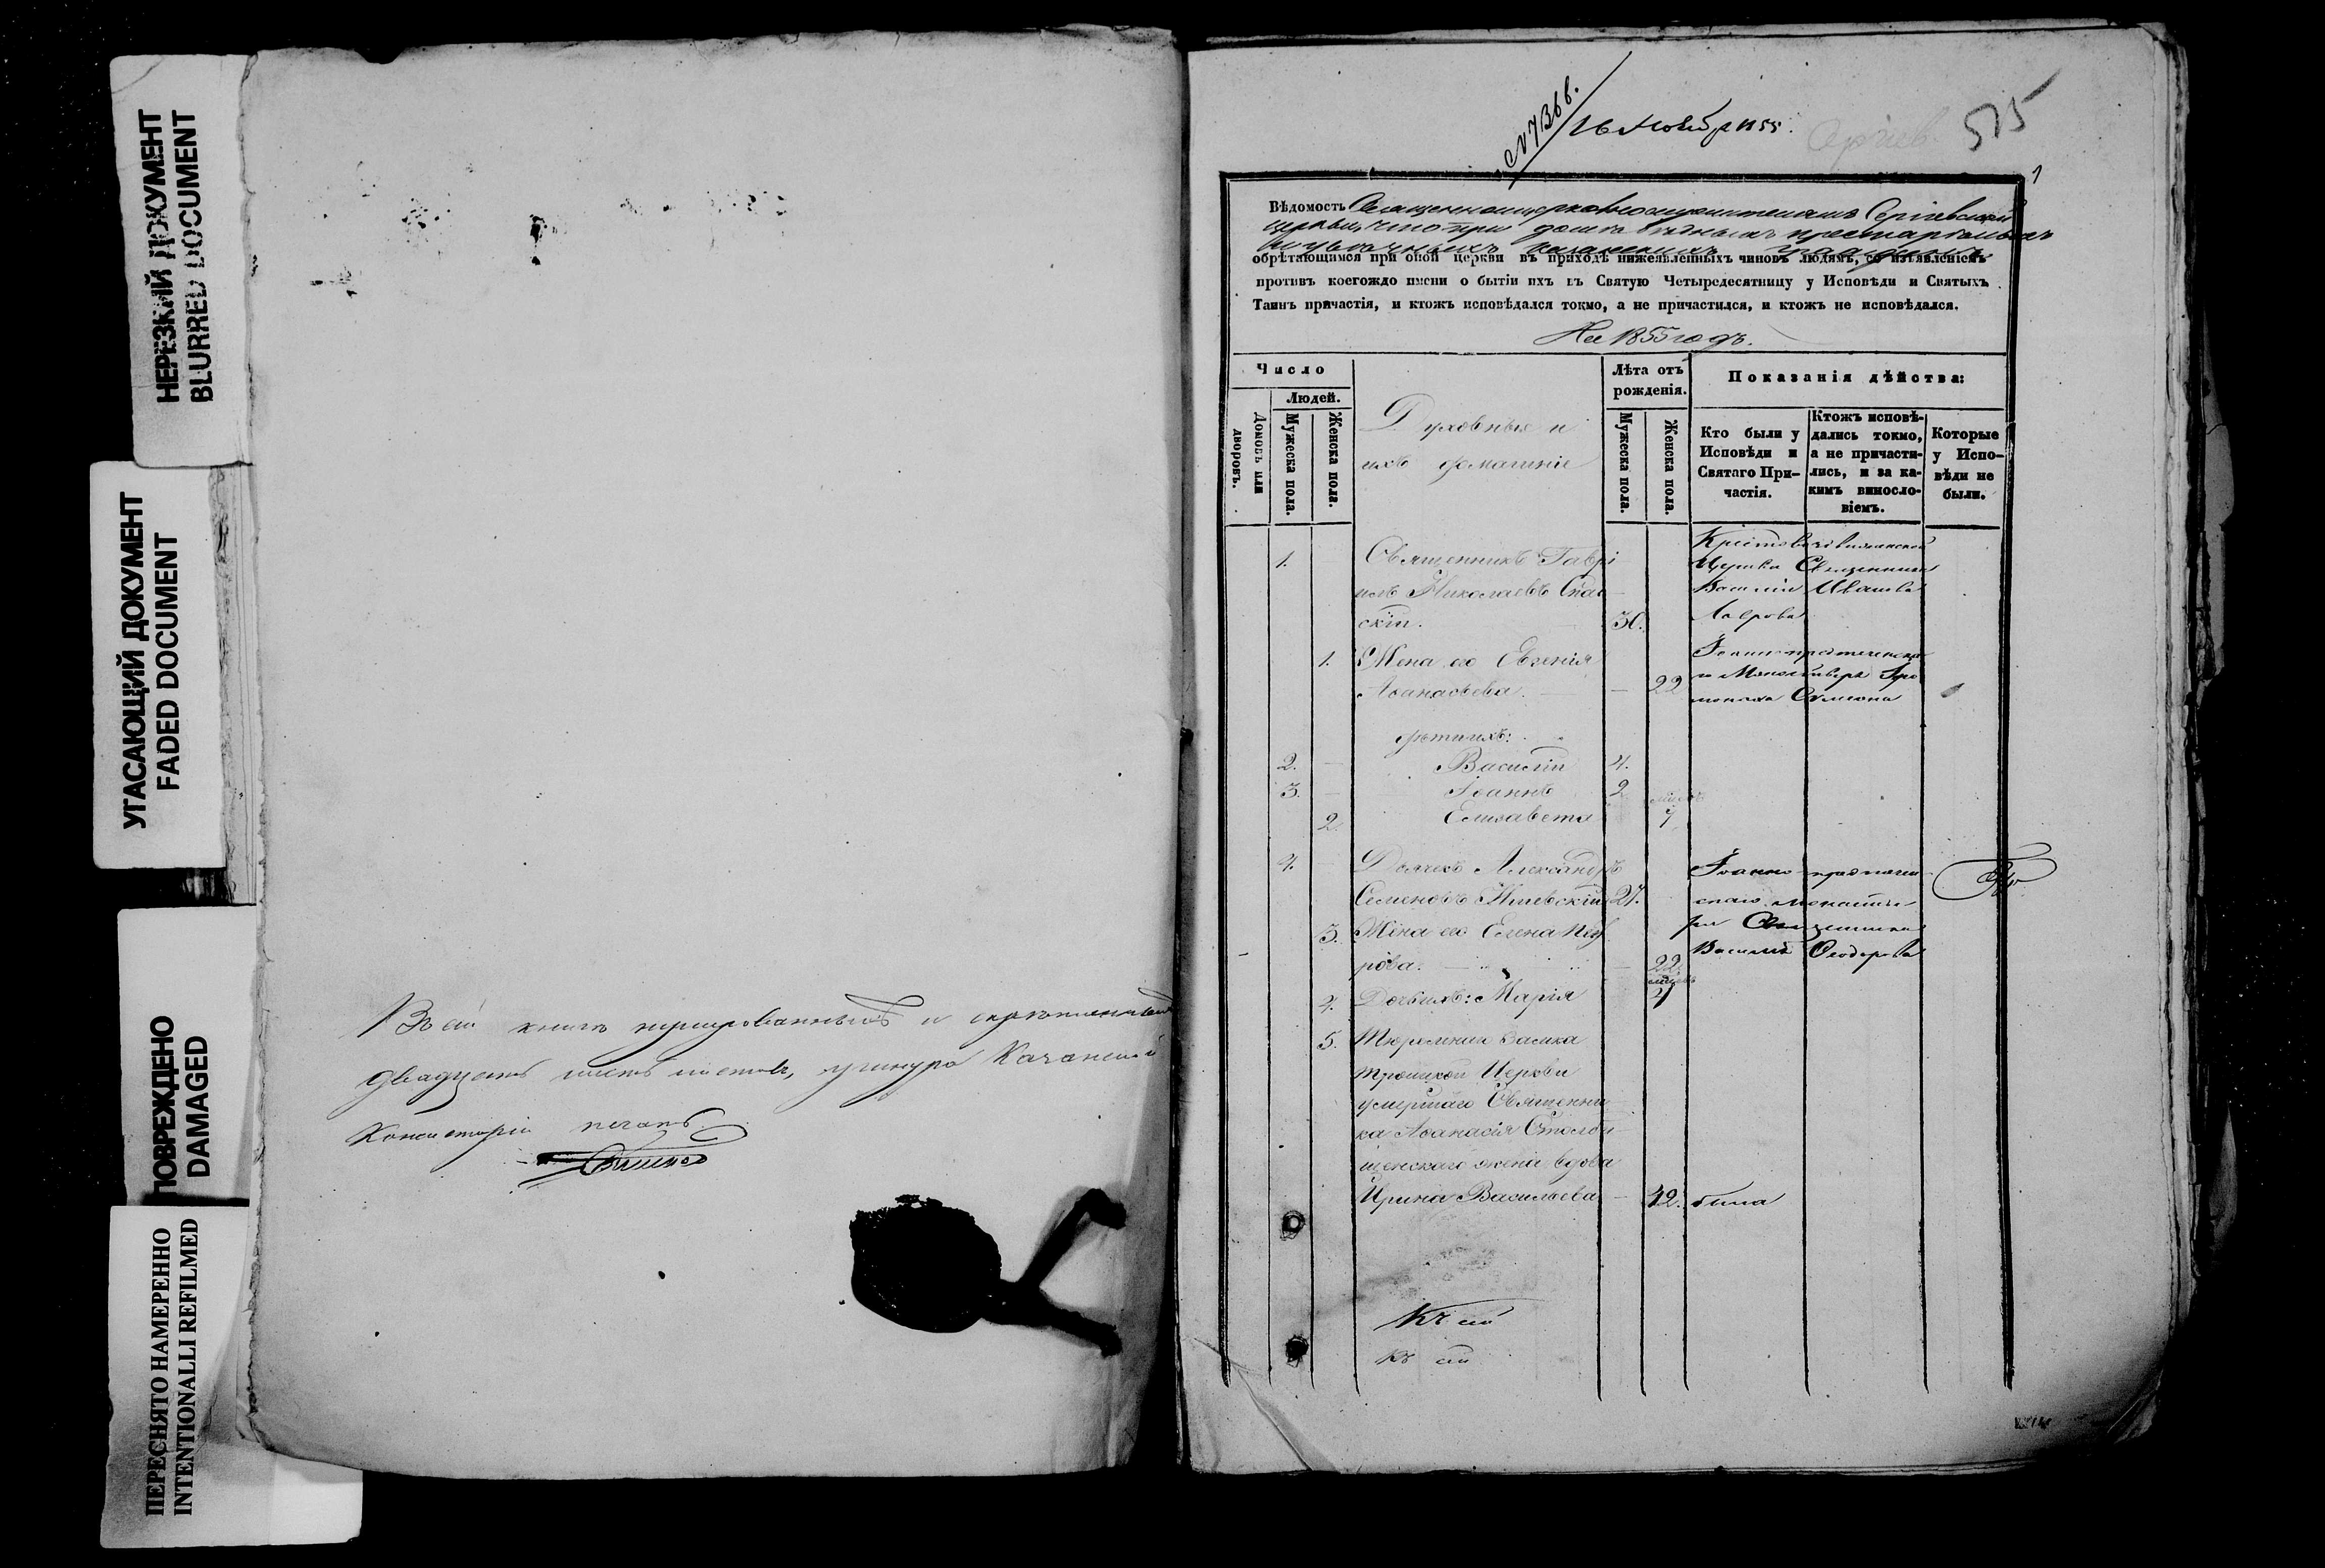 НЕРЕЗКИЙ ДОКУМЕНТ
BLURRED DOCUMENT
УГАСАЮЩИЙ ДОКУМЕНТ
FADED DOCUMENT
ПОВРЕЖДЕНО
DAMAGED
ПЕРЕСНЯТО НАМЕРЕННО
INTENTIONALLI REFILMED
Въ сей книгѣ нумерованныхъ и скрѣпленныхъ
двадцать листовъ, у шнура Казанской
Консисторіи печать.
№ 7366.
16 Ноября 1855.
515
1
Вѣдомость Священноцерковнослужителямъ Сергіевской
церкви, что при домѣ бѣдныхъ престарѣлыхъ
обрѣтающимся при оной церкви въ приходѣ нижеявленныхъ чиновъ людямъ, со изъявленіемъ
противъ коегождо имени о бытіи ихъ въ Святую Четыредесятницу у Исповѣди и Святыхъ
Таинъ причастія, и ктожъ исповѣдался токмо, а не причастился, и ктожъ не исповѣдался.
На 1855 годъ.
Число
Людей.
Домовъ или дворовъ.
Мужеска пола.
Женска пола.
Духовные и
ихъ домашніе
Лѣта отъ рожденія.
Мужеска пола.
Женска пола.
Показанія дѣйства:
Кто были у Исповѣди и Святаго Причастія.
Ктожъ исповѣдались токмо, а не причастились, и за какимъ винословіемъ.
Которые у Исповѣди не были.
1. Священникъ Гаврі
илъ Николаевъ Спас
скій. 30.
Крестовоздвиженской
Церкви Священника
Василія Иванова
Лаврова
1. Жена его Евгенія
Аѳанасьева. 22
Іоанно-предтеченска
го Монастыря Іеро
монаха Симеона
дѣти ихъ:
2. Василій 4.
3. Іоаннъ 2
2. Елисавета 7
4. Дьячекъ Александръ
Семеновъ 27.
Іоанно-предтечен
скаго монасты
ря Священника
Василія Ѳеодорова
3. Жена его Елена Пет
рова. 22
4. Дочь ихъ: Марія
5. Тюремнаго замка
Троицкой Церкви
умершаго Священни
ка Аѳанасія
жена вдова
Ирина Васильева 42. была
Къ сей
къ сей